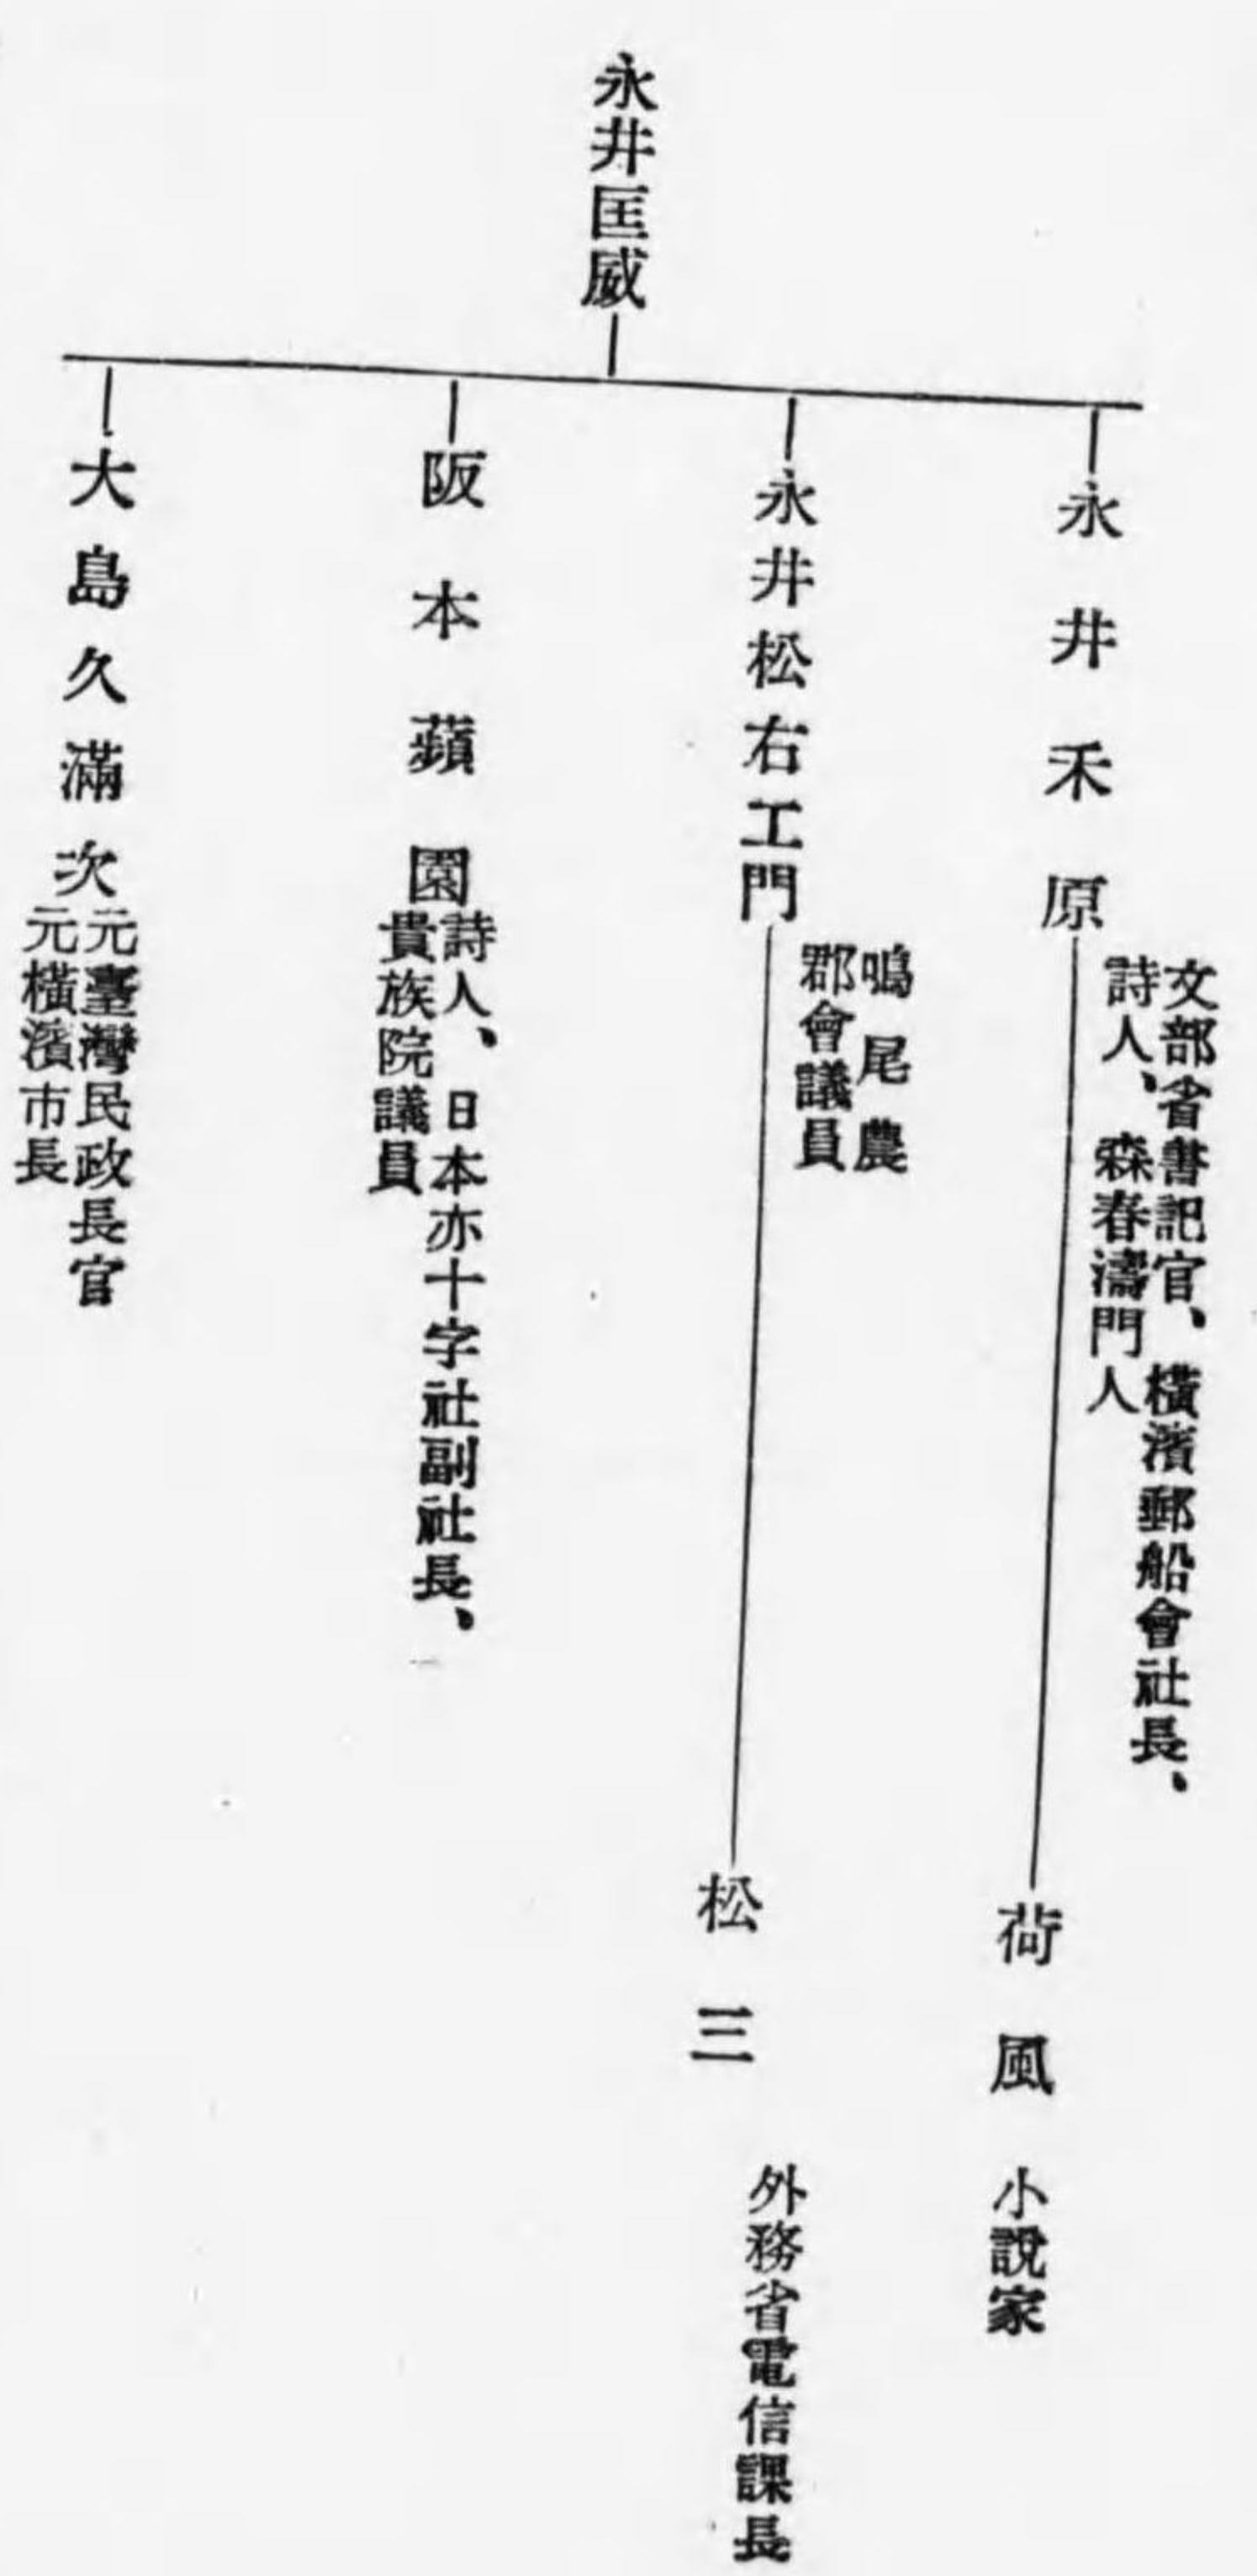 永井匡威
永井禾原
文部省書記官、橫濱郵船會社長、
詩人、森春濤門人
荷風
小說家
永井松右工門
鳴尾農
郡會議員
松三
外務省電信課長
阪本蘋園
詩人、日本亦十字社副社長、
貴族院議員
大島久滿次
元臺灣民政長官
元橫濱市長